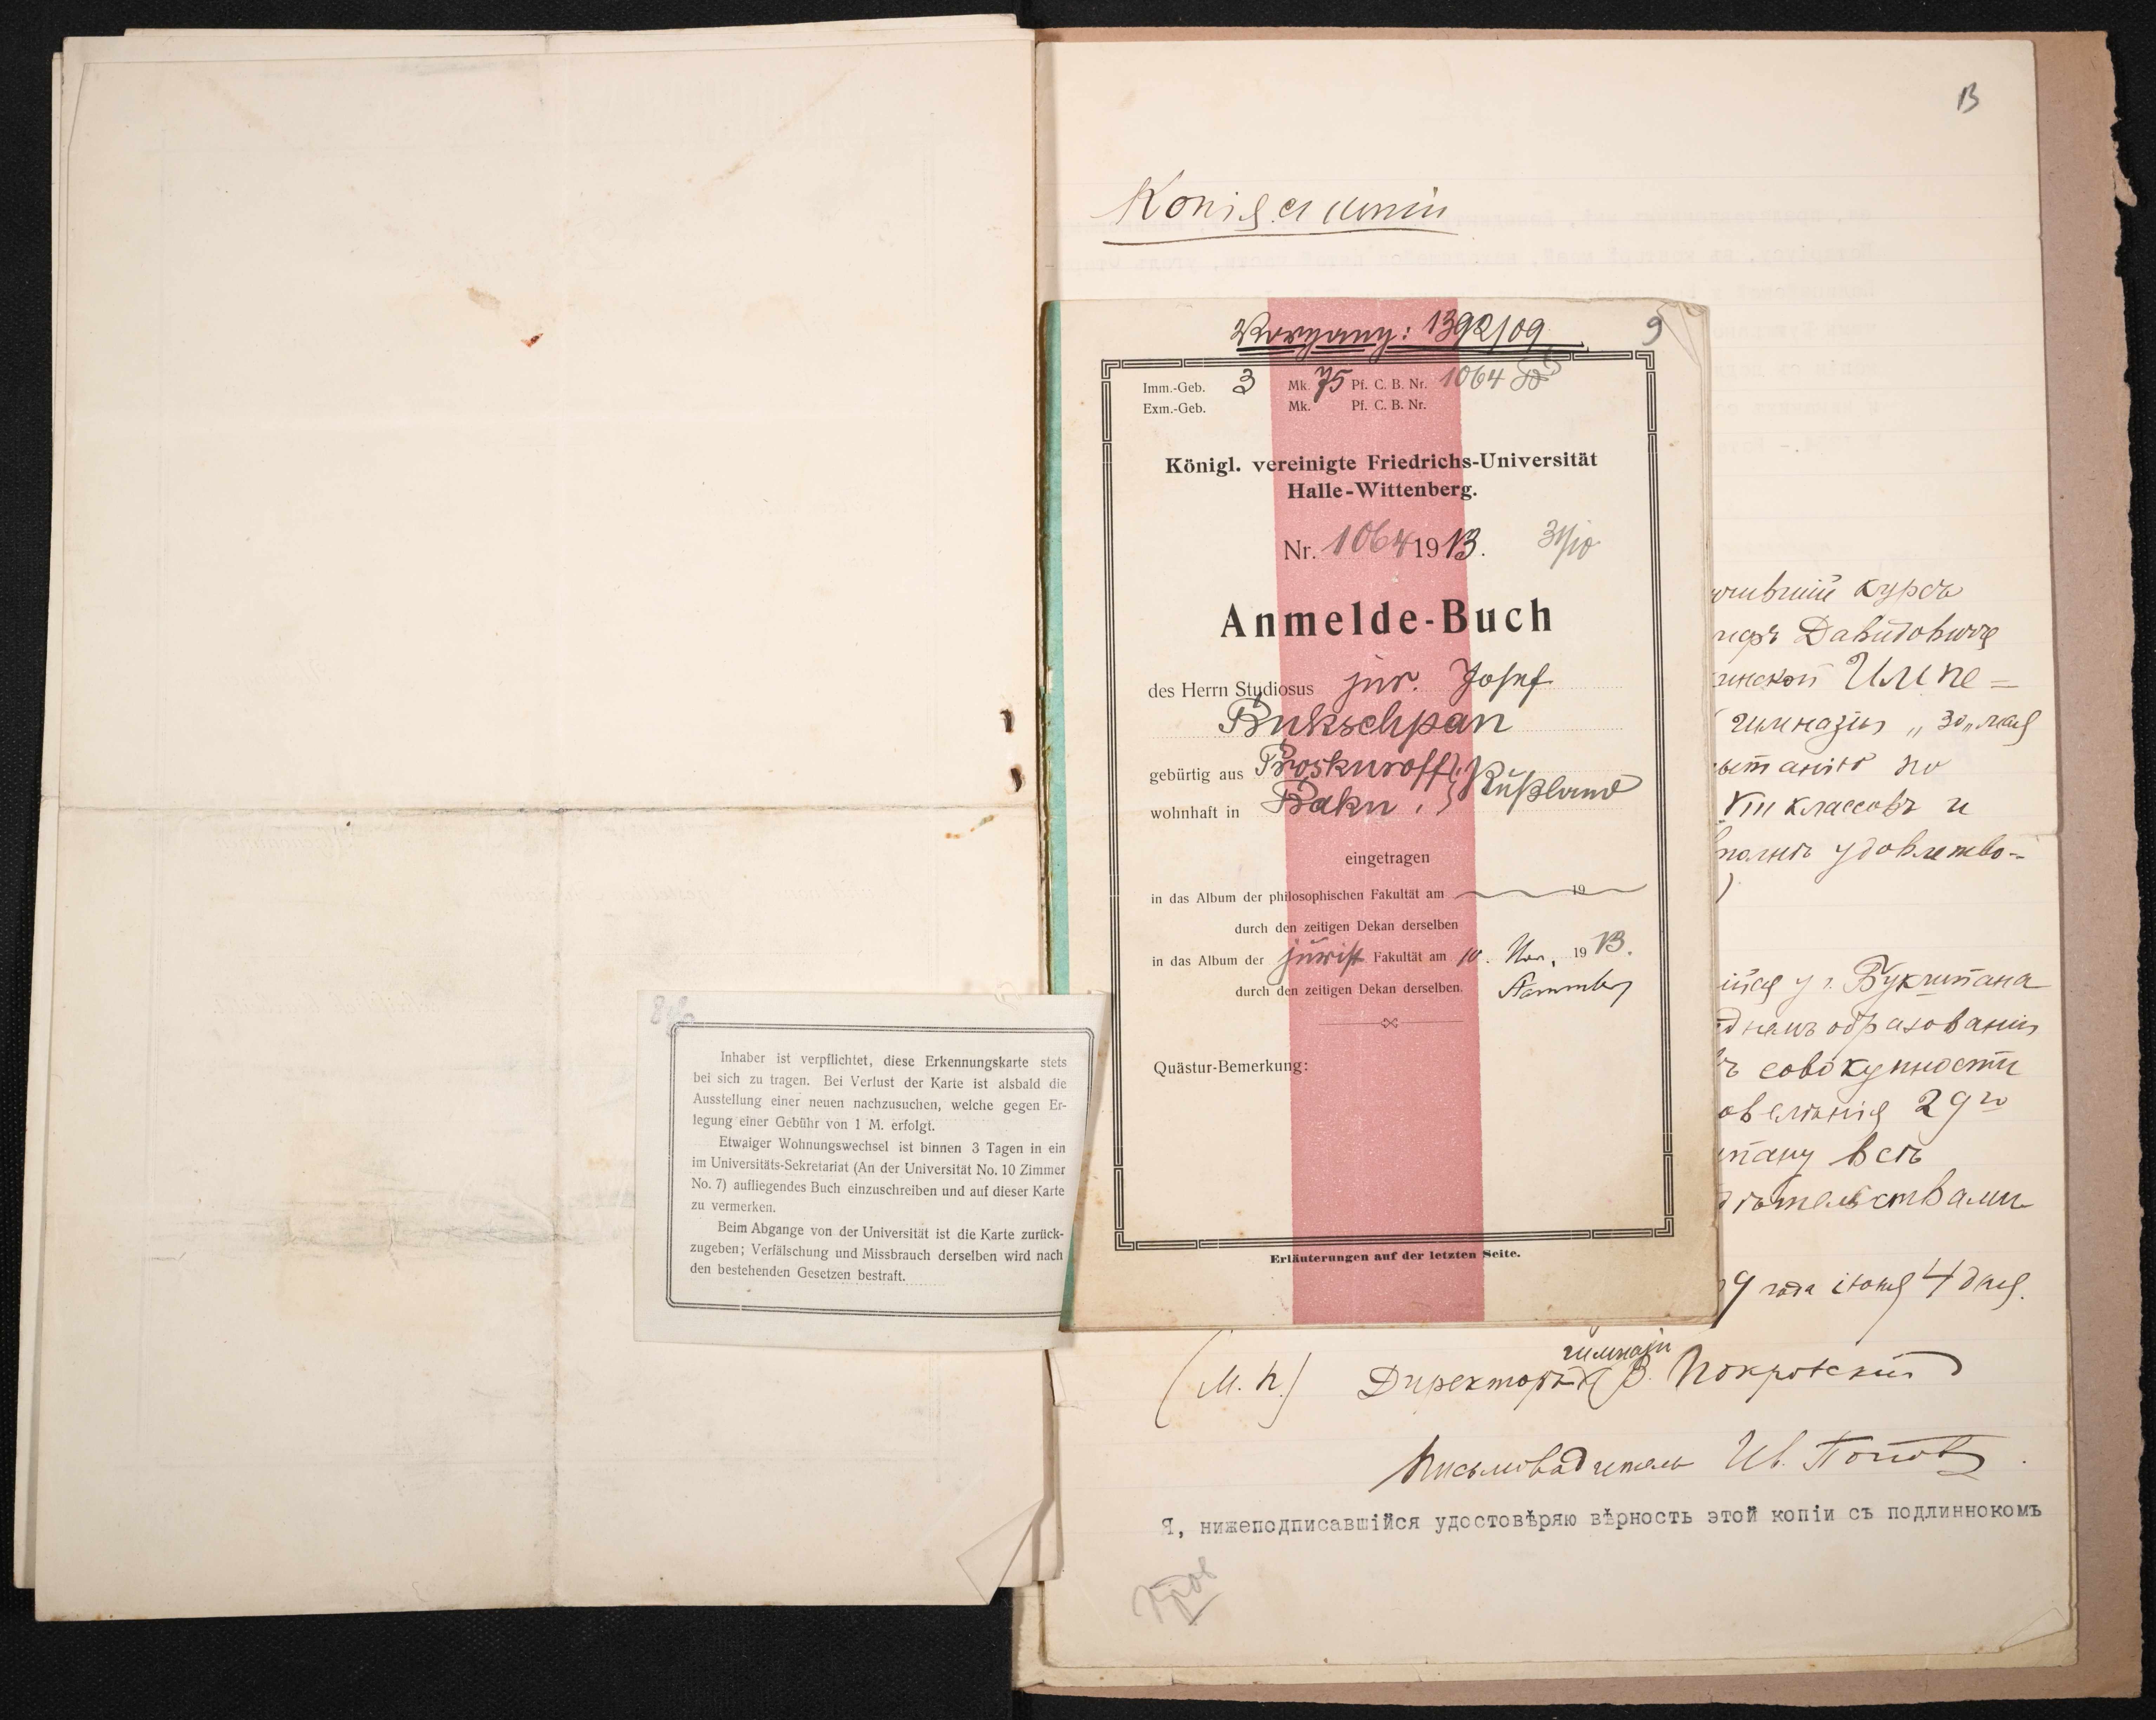 13
Копія съ копіи
Vorgang: 1392/09
9
Imm.-Geb. 3 Mk. 75 Pf. C. B. Nr. 1064
Exm.-Geb. Mk. Pf. C. B. Nr.
Königl. vereinigte Friedrichs-Universität
Halle-Wittenberg.
Nr. 1064 1913. 31/10
Anmelde-Buch
des Herrn Studiosus jur. Josef
Bukschpan
gebürtig aus Proskuroff
wohnhaft in Baku. Rußland
eingetragen
in das Album der philosophischen Fakultät am 19
durch den zeitigen Dekan derselben
in das Album der jurist Fakultät am 10. Nov. 1913.
durch den zeitigen Dekan derselben.
Quästur-Bemerkung:
Erläuterungen auf der letzten Seite.
Inhaber ist verpflichtet, diese Erkennungskarte stets
bei sich zu tragen. Bei Verlust der Karte ist alsbald die
Ausstellung einer neuen nachzusuchen, welche gegen Er-
legung einer Gebühr von 1 M. erfolgt.
Etwaiger Wohnungswechsel ist binnen 3 Tagen in ein
im Universitäts-Sekretariat (An der Universität No. 10 Zimmer
No. 7) aufliegendes Buch einzuschreiben und auf dieser Karte
zu vermerken.
Beim Abgange von der Universität ist die Karte zurück-
zugeben; Verfälschung und Missbrauch derselben wird nach
den bestehenden Gesetzen bestraft.
курсъ
Давидовича
Импе=
гимназіи „30„ мая
по
VIII классовъ и
удовлетво-
у г. Букшпана
образованіи
совокупности
29го
всѣ
9 года іюня 4 дня.
(М. П.) Директоръ гимназіи В. Покровскій
Письмоводитель Ив. Поповъ.
Я, нижеподписавшійся удостовѣряю вѣрность этой копіи съ подлинникомъ